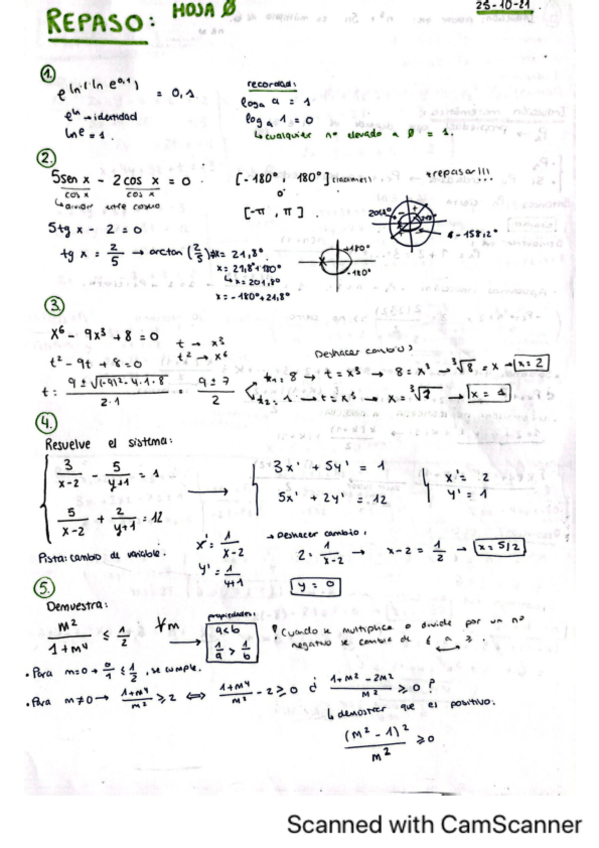 REPASO: HOJA Ø
25-10-21.
1.
= 0,1
ln e = 1.
recordad:
log_a a = 1
log_a 1 = 0
↳ cualquier nº elevado a Ø = 1.
2.
5 sen x / cos x - 2 cos x / cos x = 0
[-180º, 180º]
o
[-π, π]
repasar!!!
5 tg x - 2 = 0
tg x = 2/5 → arctan (2/5) x = 21,8º
x = 21,8º + 180º
↳ x = 201,8º
x = -180º + 21,8º
+180º
-180º
-158,2º
3
x⁶ - 9x³ + 8 = 0
t → x³
t² → x⁶
t² - 9t + 8 = 0
Deshacer cambio
t = 9 ± √((-9)² - 4·1·8) / 2·1 = 9 ± 7 / 2
t₁ = 8 → t = x³ → 8 = x³ → ∛8 = x → x = 2
t₂ = 1 → t = x³ → x = ∛1 → x = 1
4.
Resuelve el sistema:
3/(x-2) - 5/(y+1) = 1
5/(x-2) + 2/(y+1) = 12
→ 3x' + 5y' = 1
5x' + 2y' = 12
x' = 2
y' = 1
Pista: cambio de variable.
x' = 1/(x-2)
y' = 1/(y+1)
→ Deshacer cambio:
2 = 1/(x-2) → x-2 = 1/2 → x = 5/2
y = 0
5.
Demuestra:
m²/(1+m⁴) ≤ 1/2 ∀m →
propiedades:
a<b
1/a > 1/b
! Cuando se multiplica o divide por un nº
negativo se cambia de
• Para m=0 → 0/1 ≤ 1/2, se cumple.
• Para m≠0 → (1+m⁴)/m² ≥ 2 ⟺ (1+m⁴)/m² - 2 ≥ 0 ¿ (1+m⁴-2m²)/m² ≥ 0?
↳ demostrar que es positivo.
(m²-1)²/m² ≥ 0
Scanned with CamScanner